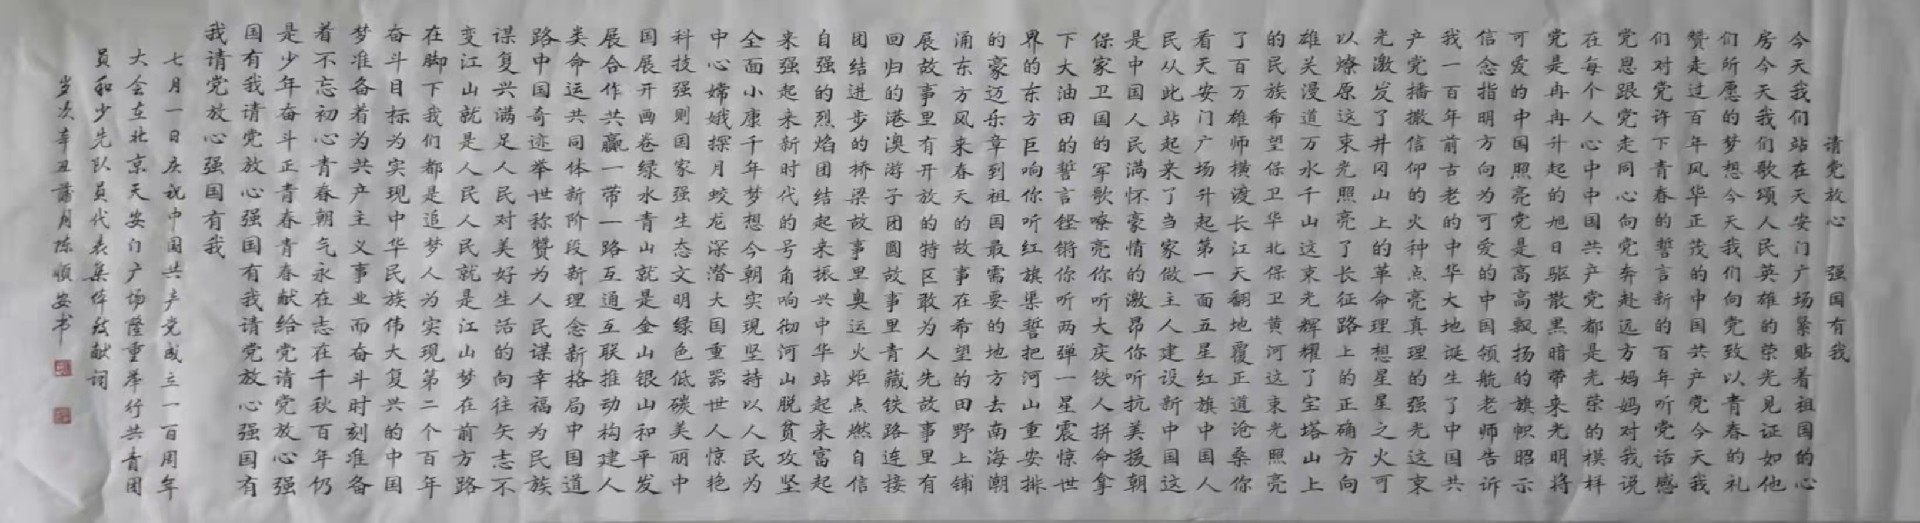 请党放心 强国有我
今天我们站在天安门广场紧贴着祖国的心
房今天我们歌颂人民英雄的荣光见证如他
们所愿的梦想今天我们向党致以青春的礼
赞走过百年风华正茂的中国共产党今天我
们对党许下青春的誓言新的百年听党话感
党恩跟党走同心向党奔赴远方妈妈对我说
在每个人心中中国共产党都是光荣的模样
党是冉冉升起的旭日驱散黑暗带来光明将
可爱的中国照亮党是高高飘扬的旗帜昭示
信念指明方向为可爱的中国领航老师告诉
我一百年前古老的中华大地诞生了中国共
产党播撒信仰的火种点亮真理的强光这束
光激发了井冈山上的革命理想星星之火可
以燎原这束光照亮了长征路上的正确方向
雄关漫道万水千山这束光辉耀了宝塔山上
的民族希望保卫华北保卫黄河这束光照亮
了百万雄师横渡长江天翻地覆正道沧桑你
看天安门广场升起第一面五星红旗中国人
民从此站起来了当家做主人建设新中国这
是中国人民满怀豪情的激昂你听抗美援朝
保家卫国的军歌嘹亮你听大庆铁人拼命拿
下大油田的誓言铿锵你听两弹一星震惊世
界的东方巨响你听红旗渠誓把河山重安排
的豪迈乐章到祖国最需要的地方去南海潮
涌东方风来春天的故事在希望的田野上铺
展故事里有开放的特区敢为人先故事里有
回归的港澳游子团圆故事里青藏铁路连接
团结进步的桥梁故事里奥运火炬点燃自信
自强的烈焰团结起来振兴中华站起来富起
来强起来新时代的号角响彻河山脱贫攻坚
全面小康千年梦想今朝实现坚持以人民为
中心嫦娥探月蛟龙深潜大国重器世人惊艳
科技强则国家强生态文明绿色低碳美丽中
国展开画卷绿水青山就是金山银山和平发
展合作共赢一带一路互通互联推动构建人
类命运共同体新阶段新理念新格局中国道
路中国奇迹举世称赞为人民谋幸福为民族
谋复兴满足人民对美好生活的向往矢志不
变江山就是人民人民就是江山梦在前方路
在脚下我们都是追梦人为实现第二个百年
奋斗目标为实现中华民族伟大复兴的中国
梦准备着为共产主义事业而奋斗时刻准备
着不忘初心青春朝气永在志在千秋百年仍
是少年奋斗正青春青春献给党请党放心强
国有我请党放心强国有我请党放心强国有
我请党放心强国有我
七月一日庆祝中国共产党成立一百周年
大会在北京天安门广场隆重举行共青团
员和少先队员代表集体致献词
岁次辛丑蒲月陈顺安书